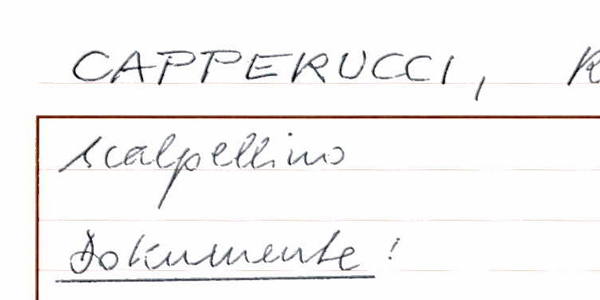 CAPPERUCCI,
scalpellino
Dokumente!